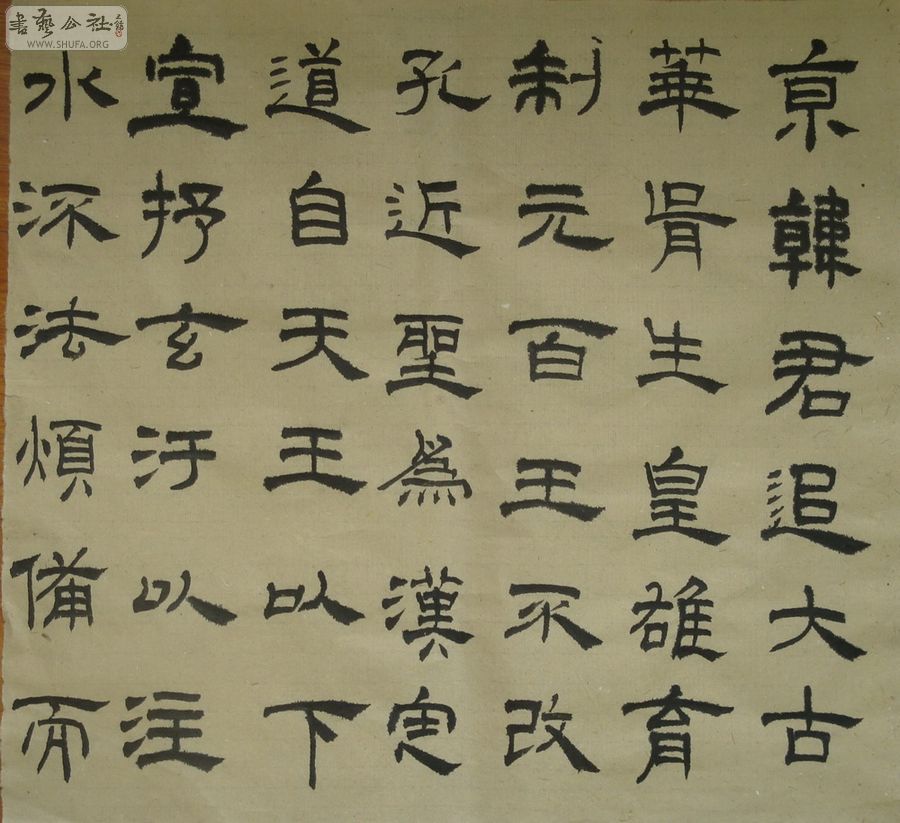 書藝公社
WWW.SHUFA.ORG
京韓君追大古
華胥生皇雄育
制元百王不改
孔近聖為漢定
道自天王以下
宣抒玄汙以注
水流法煩備而